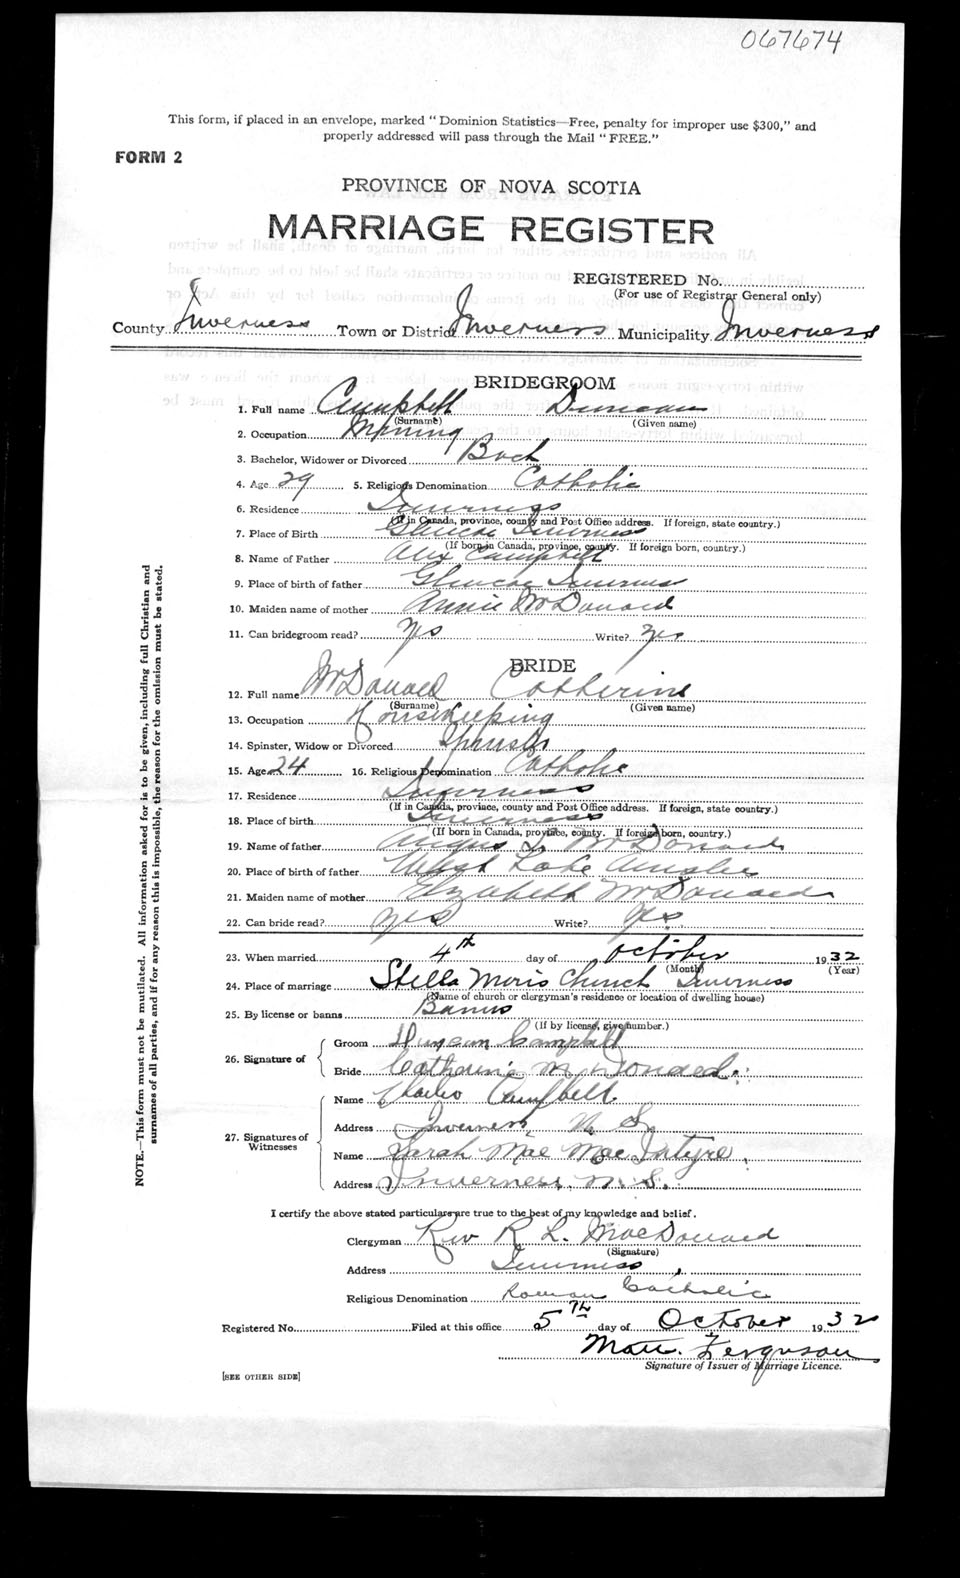 067674
This form, if placed in an envelope, marked " Dominion Statistics—Free, penalty for improper use $300," and
properly addressed will pass through the Mail " FREE."
FORM 2
PROVINCE OF NOVA SCOTIA
MARRIAGE REGISTER
REGISTERED No.
(For use of Registrar General only)
County Inverness Town or District Inverness Municipality Inverness
BRIDEGROOM
1. Full name Campbell Duncan
(Surname) (Given name)
2. Occupation Mining
3. Bachelor, Widower or Divorced Bach
4. Age 29 5. Religious Denomination Catholic
6. Residence Inverness
(If in Canada, province, county and Post Office address. If foreign, state country.)
7. Place of Birth Glencoe Inverness
(If born in Canada, province, county. If foreign born, country.)
8. Name of Father Alex Campbell
9. Place of birth of father Glencoe Inverness
10. Maiden name of mother Annie McDonald
11. Can bridegroom read? Yes Write? Yes
BRIDE
12. Full name McDonald Catherine
(Surname) (Given name)
13. Occupation Housekeeping
14. Spinster, Widow or Divorced Spinster
15. Age 24 16. Religious Denomination Catholic
17. Residence Inverness
(If in Canada, province, county and Post Office address. If foreign, state country.)
18. Place of birth Inverness
(If born in Canada, province, county. If foreign born, country.)
19. Name of father Angus McDonald
20. Place of birth of father West Lake Ainslie
21. Maiden name of mother Elizabeth McDonald
22. Can bride read? Yes Write? Yes
23. When married 4th day of October 1932
(Month) (Year)
24. Place of marriage Stella Moris Church Inverness
(Name of church or clergyman's residence or location of dwelling house)
25. By license or banns Banns
(If by license, give number.)
26. Signature of
Groom Duncan Campbell
Bride Catherine McDonald
27. Signatures of Witnesses
Name Charlie Campbell
Address Inverness N. S.
Name Sarah Mae MacIntyre
Address Inverness, N. S.
I certify the above stated particulars are true to the best of my knowledge and belief.
Clergyman Rev R L. MacDonald
(Signature)
Address Inverness
Religious Denomination Roman Catholic
Registered No. Filed at this office 5th day of October 1932
Matt. Ferguson
Signature of Issuer of Marriage Licence.
[SEE OTHER SIDE]
NOTE.—This form must not be mutilated. All information asked for is to be given, including full Christian and
surnames of all parties, and if for any reason this is impossible, the reason for the omission must be stated.